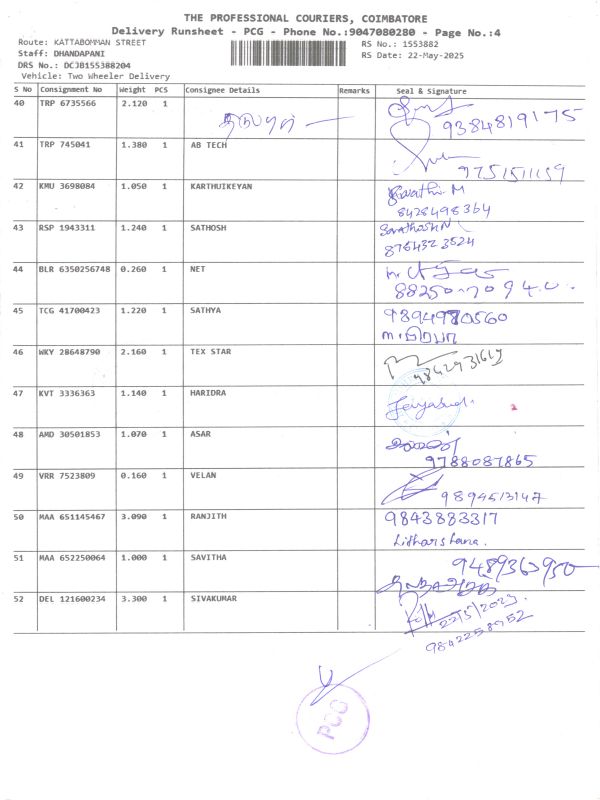 THE PROFESSIONAL COURIERS, COIMBATORE
Delivery Runsheet - PCG - Phone No.:9047080280 - Page No.:4
Route: KATTABOMMAN STREET
RS No.: 1553882
Staff: DHANDAPANI
RS Date: 22-May-2025
DRS No.: DCJB155388204
Vehicle: Two Wheeler Delivery
S No Consignment No Weight PCS Consignee Details Remarks Seal & Signature
40 TRP 6735566 2.120 1
9384819175
41 TRP 745041 1.380 1 AB TECH
9751511159
42 KMU 3698084 1.050 1 KARTHUIKEYAN
8428498364
43 RSP 1943311 1.240 1 SATHOSH
8764323524
44 BLR 6350256748 0.260 1 NET
45 TCG 41700423 1.220 1 SATHYA 9894980560
46 WKY 28648790 2.160 1 TEX STAR
47 KVT 3336363 1.140 1 HARIDRA
48 AMD 30501853 1.070 1 ASAR
9788087865
49 VRR 7523809 0.160 1 VELAN
9894513147
50 MAA 651145467 3.090 1 RANJITH 9843883317
51 MAA 652250064 1.000 1 SAVITHA
52 DEL 121600234 3.300 1 SIVAKUMAR
22/5/2025
9842258952
PCO